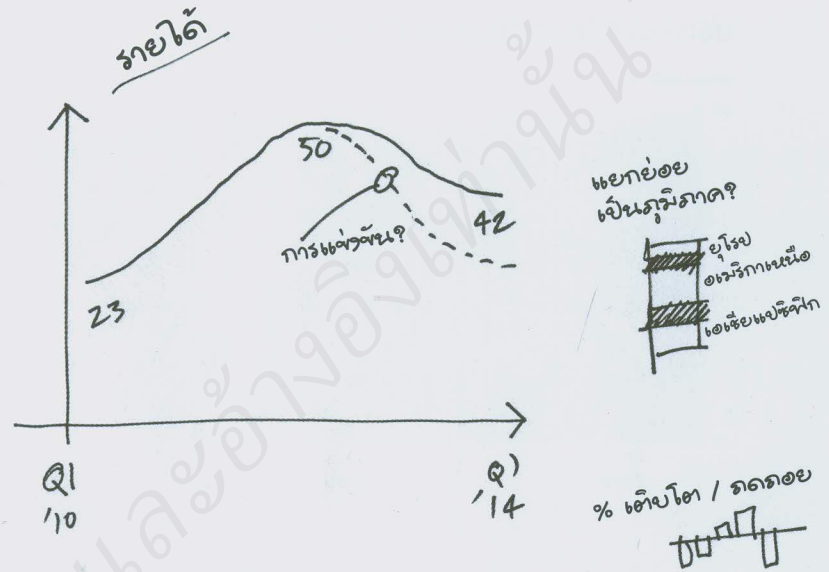 รายได้
50
การแข่งขัน?
42
23
Q1
'10
Q1
'14
แยกย่อย
เป็นภูมิภาค?
ยุโรป
อเมริกาเหนือ
เอเชียแปซิฟิก
% เติบโต / ถดถอย
และอ้างอิงเท่านั้น